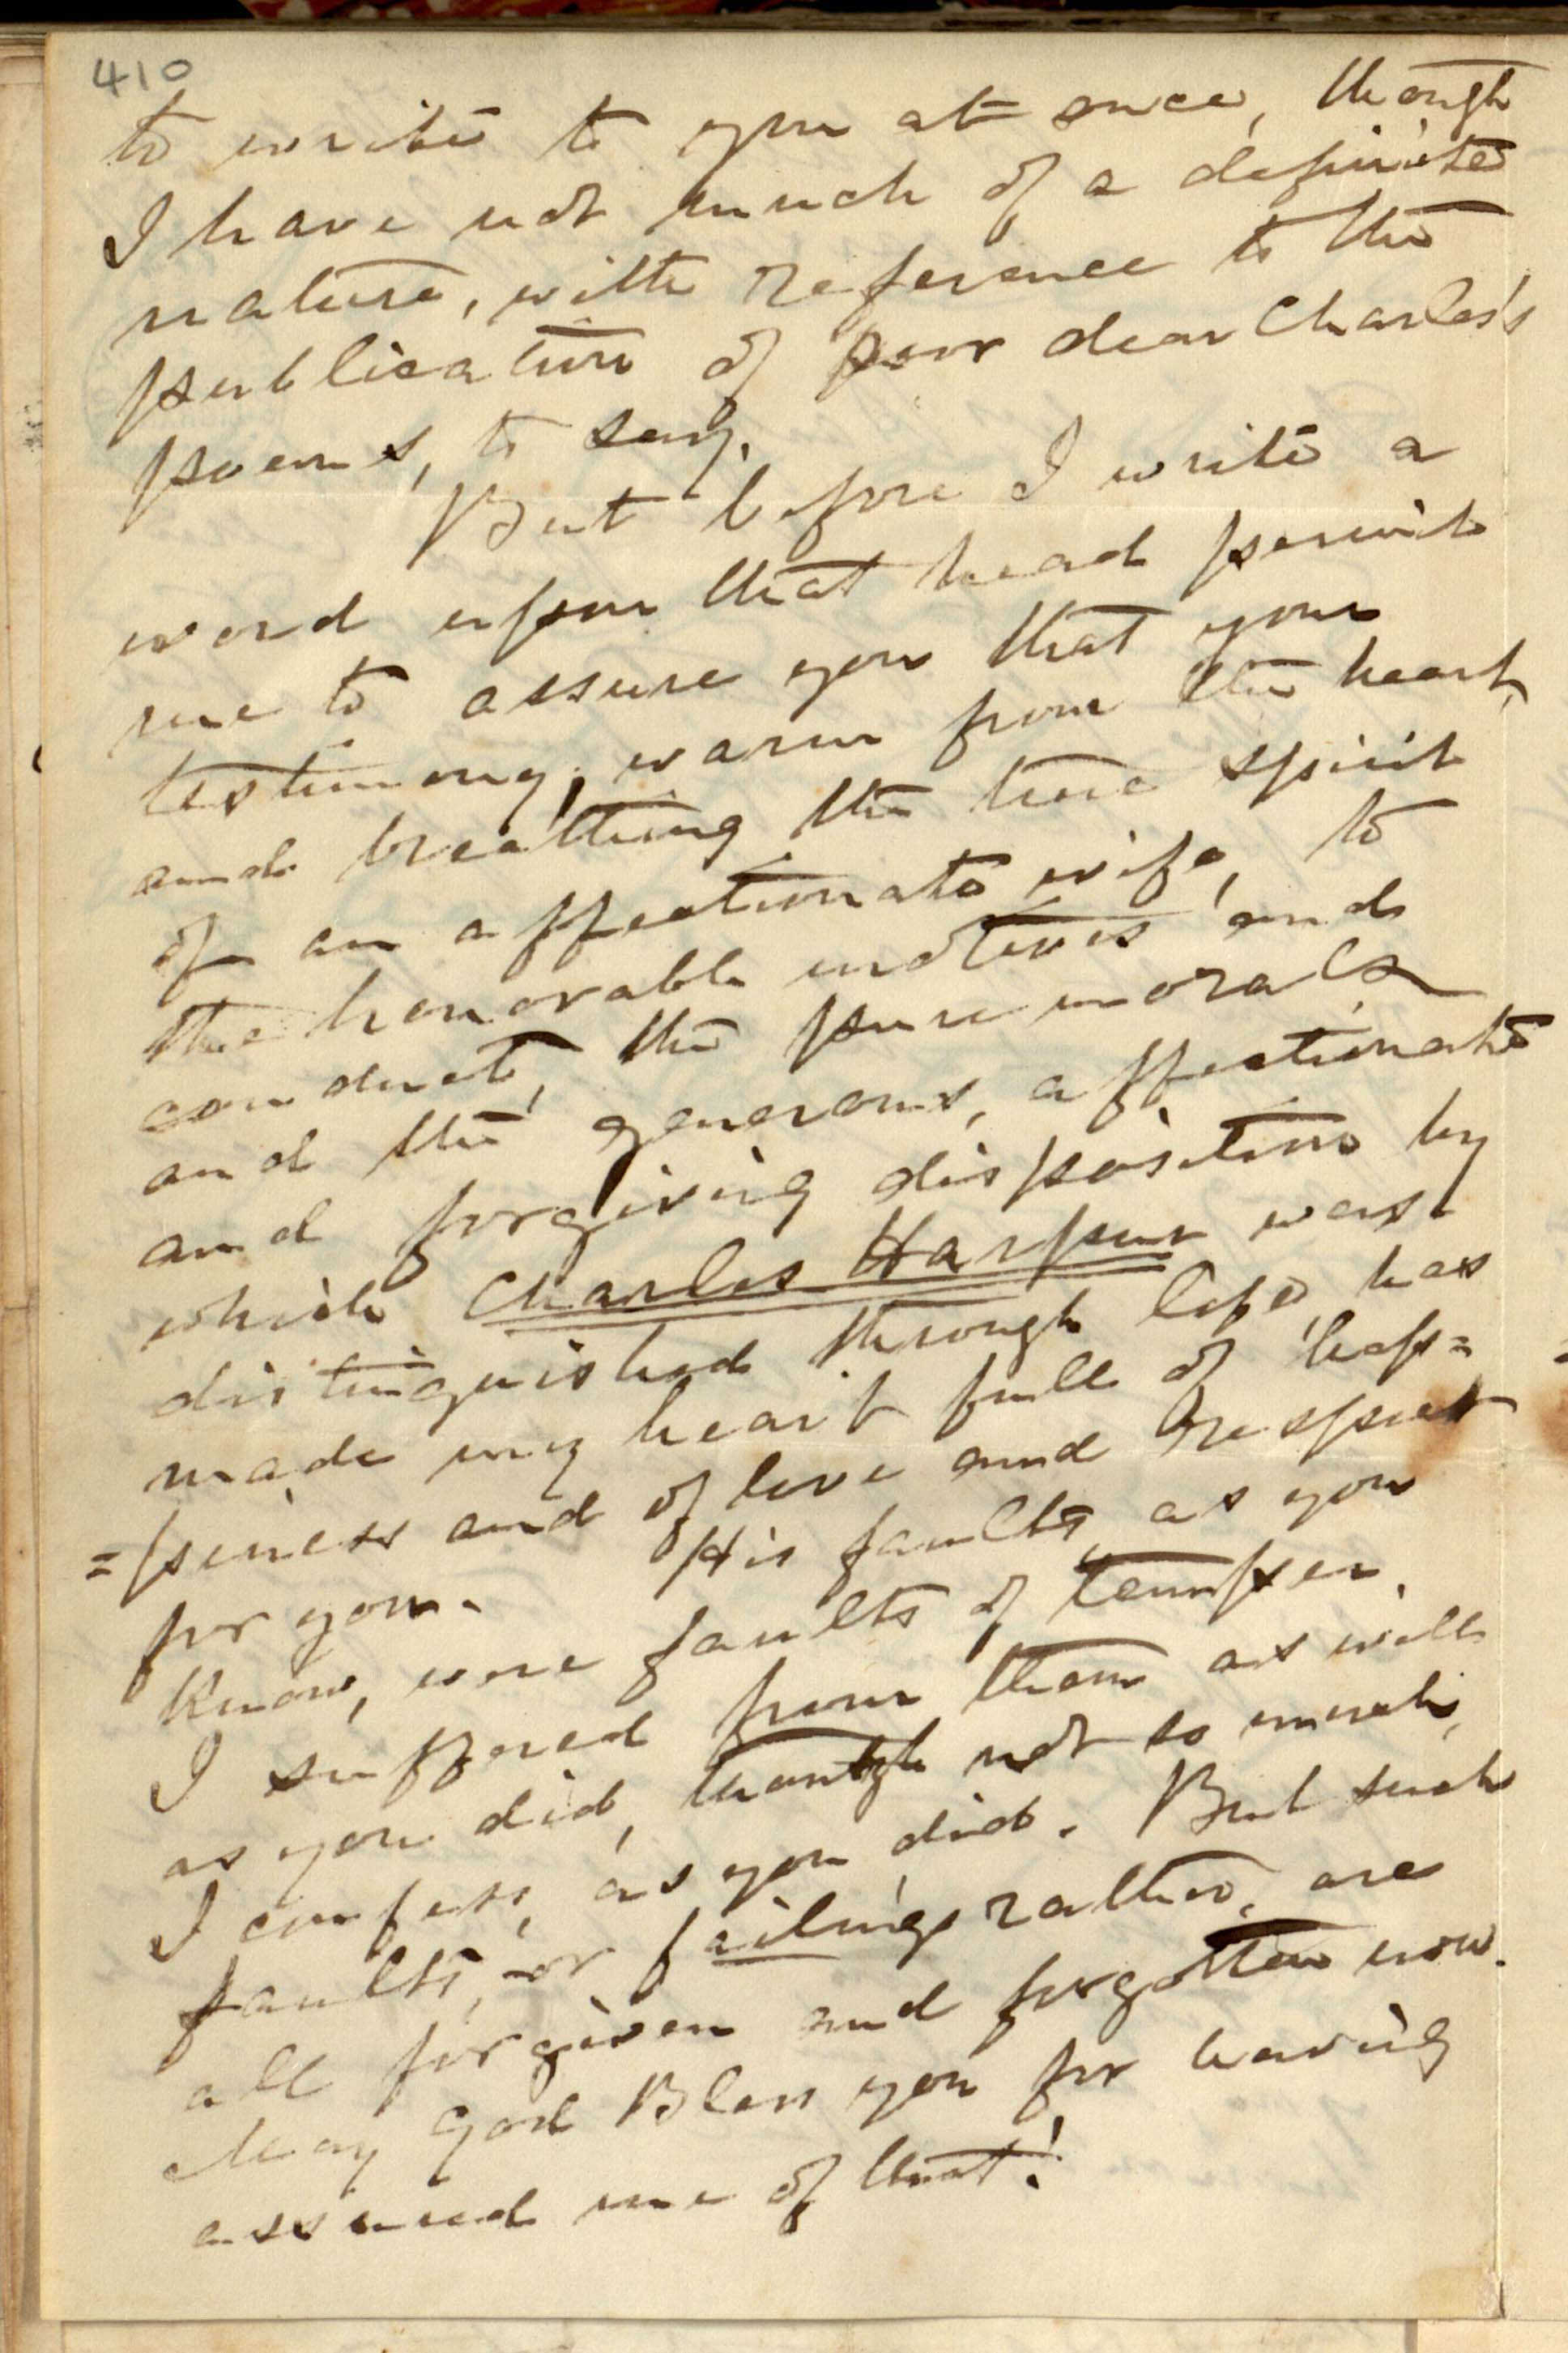 410
to write to you at once, though
I have not much of a definite
nature, with reference to the
publication of poor dear Charles's
poems, to say.
But before I write a
word upon that head permit
me to assure you that your
testimony, warm from the heart,
and breathing the true spirit
of an affectionate wife, to
the honorable motives and
conduct, the pure morals
and the generous, affectionate
and forgiving disposition by
which Charles Harpur was
distinguished through life, has
made my heart full of hap=
=piness and of love and respect
for you. His faults, as you
know, were faults of temper.
I suffered from them as well
as you did, though not so much,
I confess, as you did. But such
faults, or failings rather, are
all forgiven and forgotten now.
May God Bless you for having
assured me of that!